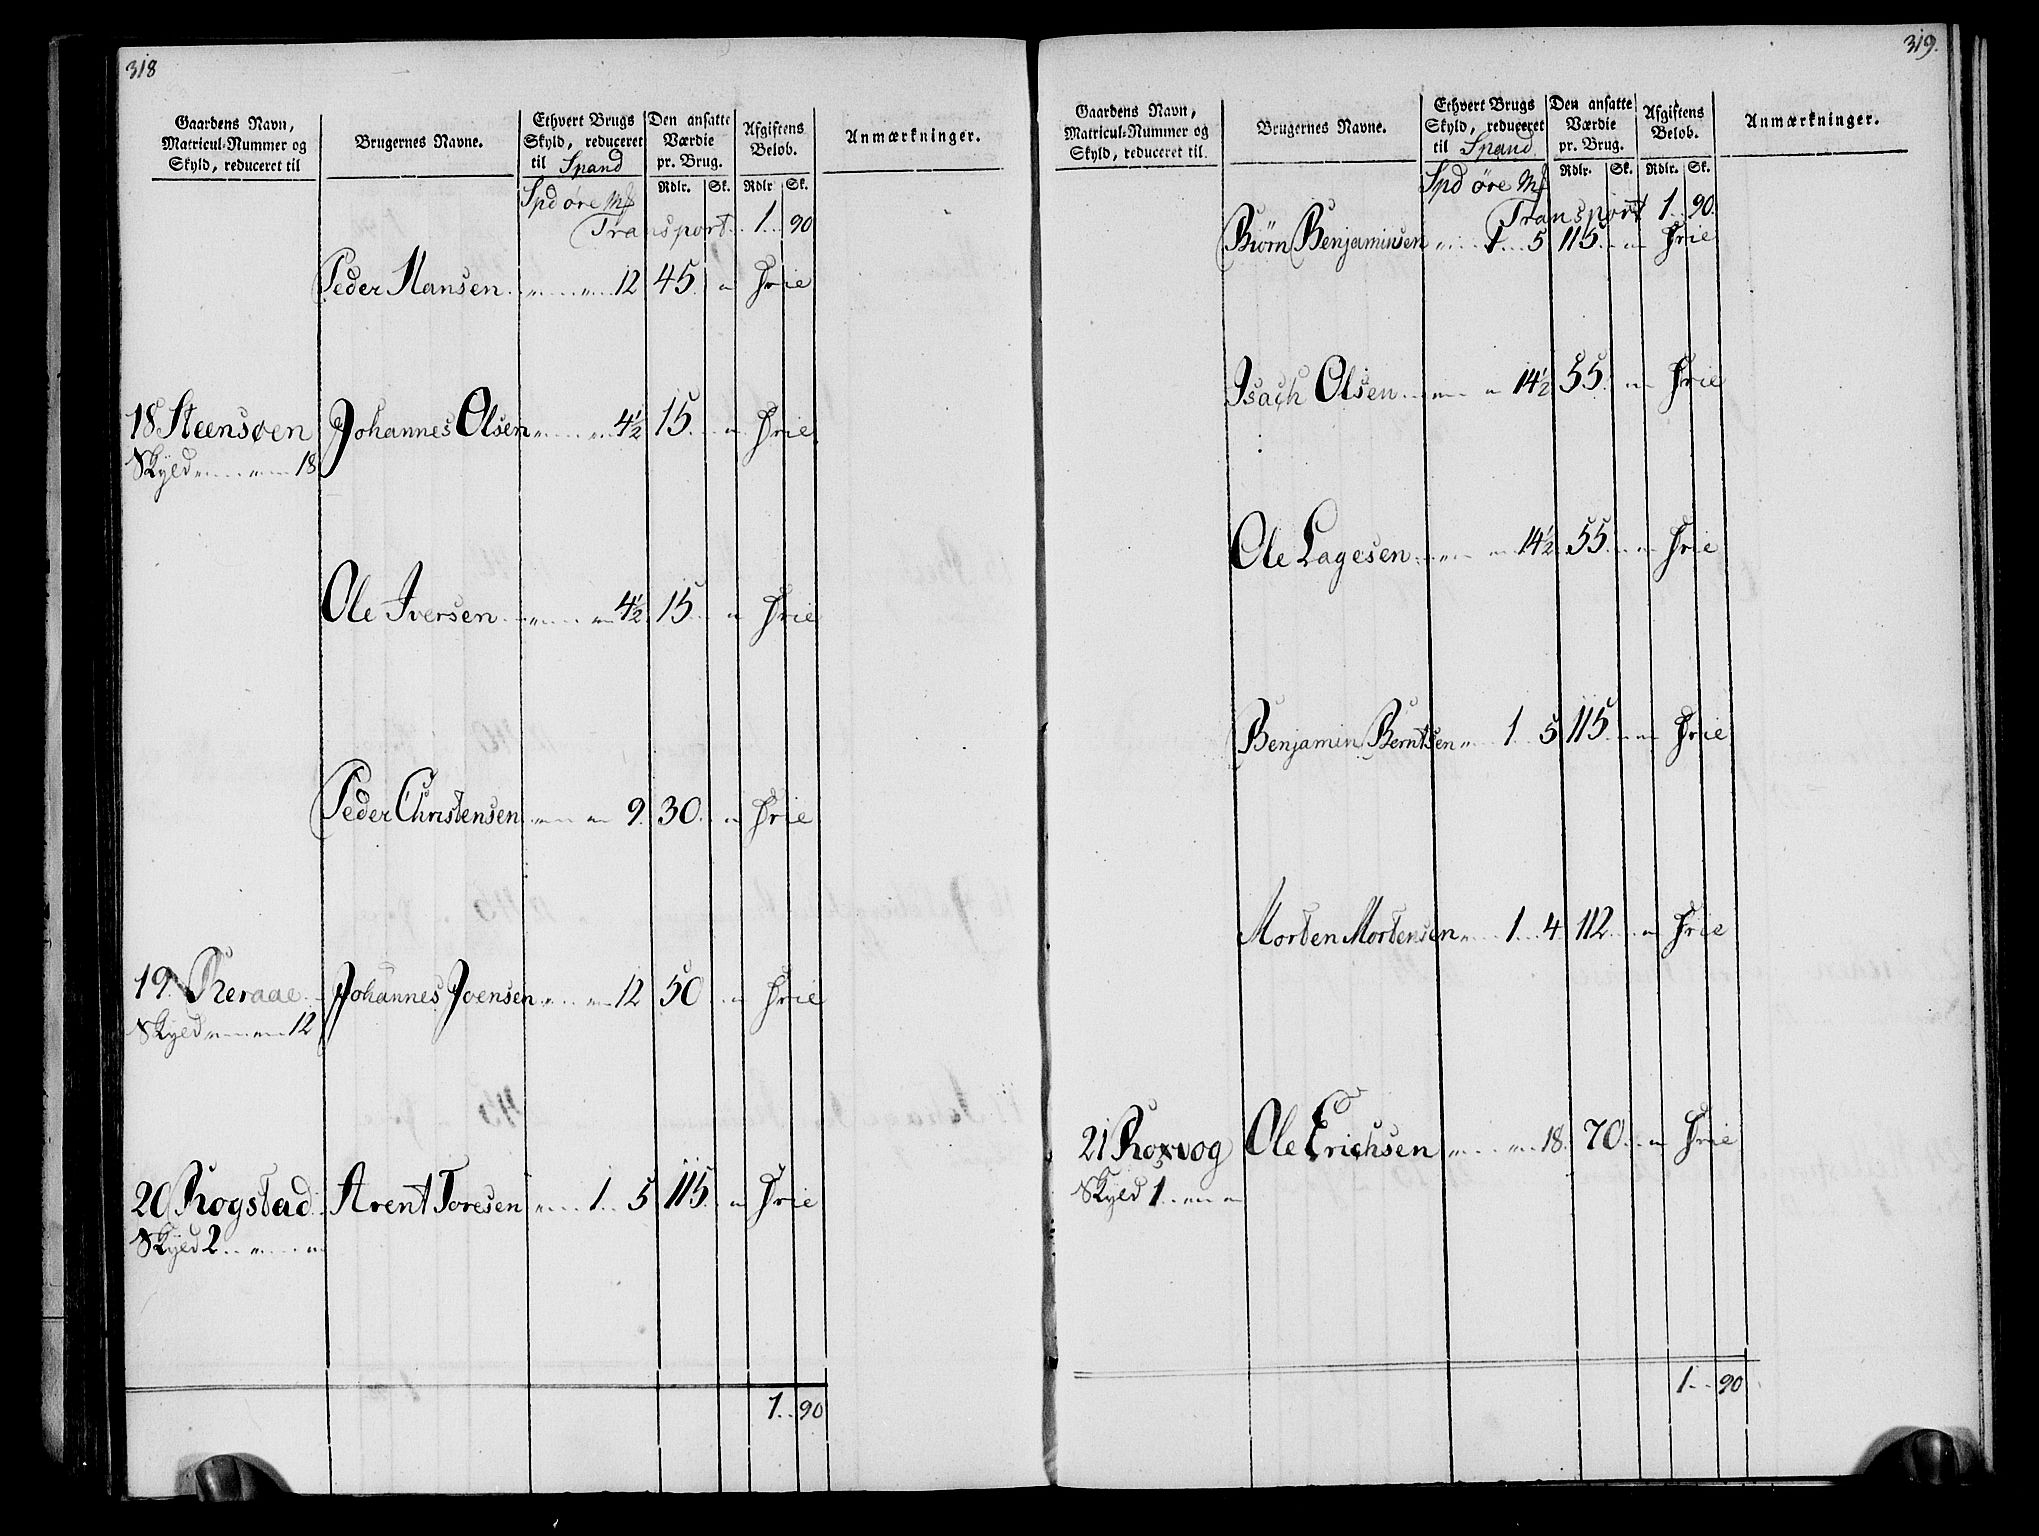 318
Gaardens Navn, Matricul-Nummer og Skyld, reduceret til
Brugernes Navne.
Ethvert Brugs Skyld, reduceret til Spand
Den ansatte Værdie pr. Brug.
Afgiftens Beløb.
Anmærkninger.
Rdlr. Sk. Rdlr Sk.
Spd øre Mk
Transport 1 90
Peder Hansen " " 12 45 " Frie
18 Steensøen Johannes Olsen " " 4½ 15 " Frie
Skyld " " 18
Ole Iversen " " 4½ 15 " Frie
Peder Christensen " " 9 30 " Frie
19 Reraae Johannes Joensen " " 12 50 " Frie
Skyld " " 12
20 Rogstad Arent Toresen " 1 5 115 " Frie
Skyld 2 " "
1 90
319.
Gaardens Navn, Matricul-Nummer og Skyld, reduceret til.
Brugernes Navne.
Ethvert Brugs Skyld, reduceret til Spand
Den ansatte Værdie pr. Brug.
Afgiftens Beløb.
Anmærkninger.
Rdlr. Sk. Rdlr. Sk.
Spd øre Mk
Transport 1 90.
Biørn Benjaminsen " 1 5 115 " Frie
Isach Olsen " " 14½ 55 " Frie
Ole Lagesen " " 14½ 55 " Frie
Benjamin Berntsen " 1 5 115 " Frie
Morten Mortensen " 1 4 112 " Frie
21 Roxvog Ole Erichsen " " 18 70 " Frie
Skyld 1 " "
1 90